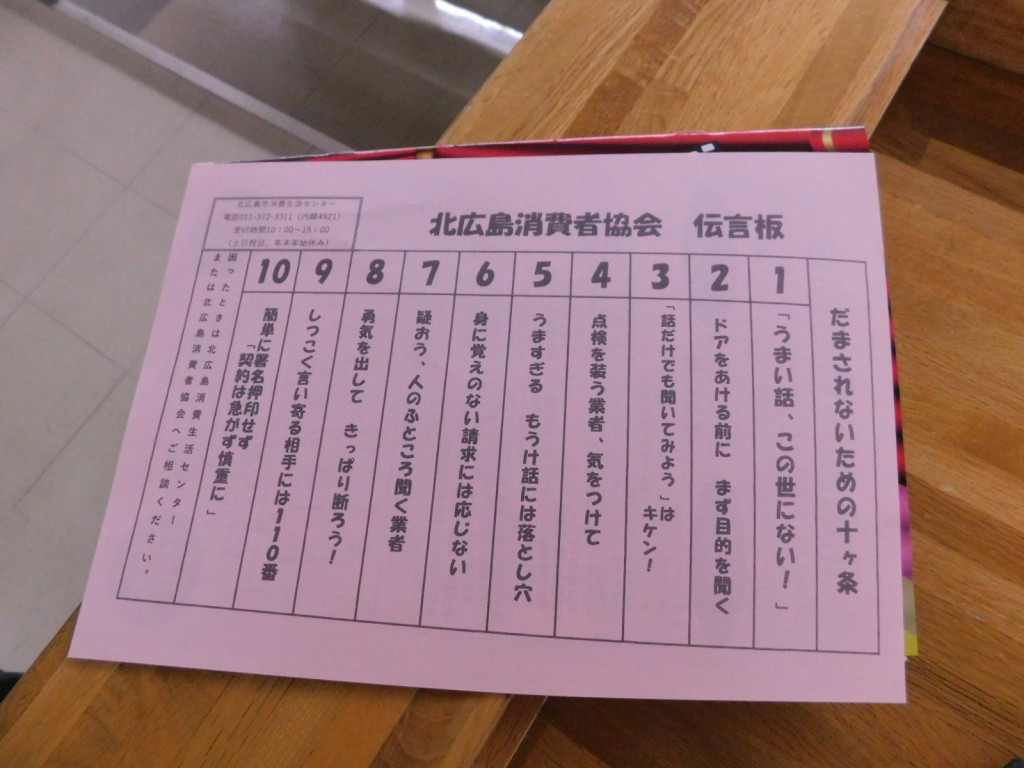 北広島消費者協会　伝言板
だまされないための十ヶ条
1
「うまい話、この世にない！」
2
ドアをあける前に　まず目的を聞く
3
「話だけでも聞いてみよう」は
キケン！
4
点検を装う業者、気をつけて
5
うますぎる　もうけ話には落とし穴
6
身に覚えのない請求には応じない
7
疑おう、人のふところ聞く業者
8
勇気を出して　きっぱり断ろう！
9
しつこく言い寄る相手には110番
10
簡単に署名押印せず
「契約は急がず慎重に」
困ったときは北広島消費生活センター
または北広島消費者協会へご相談ください。
北広島市消費生活センター
電話011-372-3311（内線4921）
受付時間10：00～15：00
（土日祝日、年末年始休み）